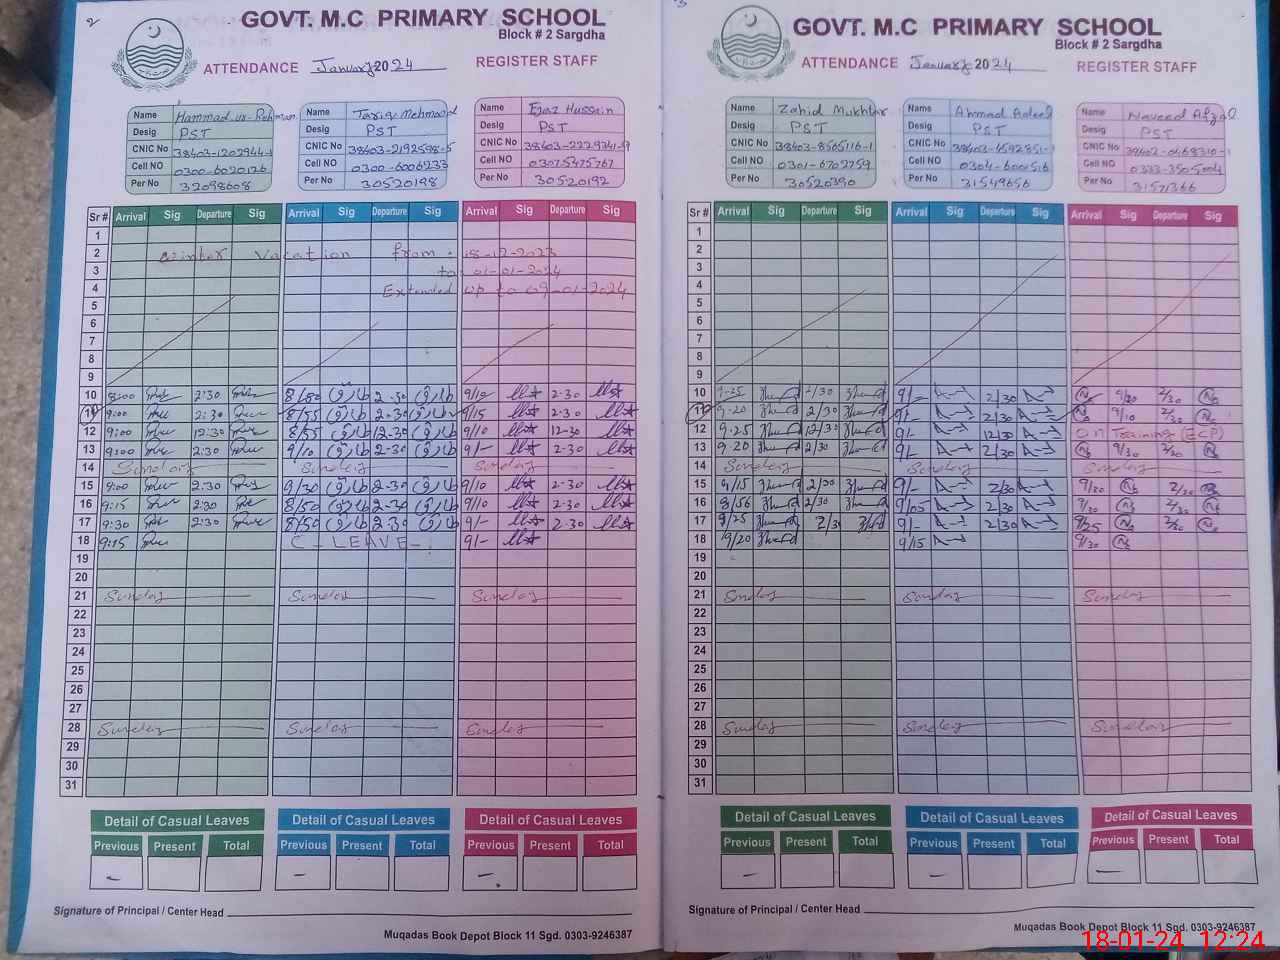 2
GOVT. M.C PRIMARY SCHOOL
Block # 2 Sargdha
ATTENDANCE January 2024 REGISTER STAFF
Name Hammad ur Rehman
Desig PST
CNIC No 38403-1202944-1
Cell NO 0300-6020126
Per No 32098608
Name Tariq Mehmood
Desig PST
CNIC No 38403-2192598-5
Cell NO 0300-6006233
Per No 30520198
Name Ejaz Hussain
Desig PST
CNIC No 38403-2229341-9
Cell NO 03075475767
Per No 30520192
Sr # Arrival Sig Departure Sig Arrival Sig Departure Sig Arrival Sig Departure Sig
1
2 winter vacation from: 18-12-2023
3 to 01-01-2024
4 Extended up to 09-01-2024
5
6
7
8
9
10 8:00 2:30 8/50 طارق 2-30 طارق 9/10 2-30
11 9:00 2:30 8/55 طارق 2-30 طارق 9/15 2-30
12 9:00 12:30 8/55 طارق 12-30 طارق 9/10 12-30
13 9:00 2:30 9/10 طارق 2-30 طارق 9/- 2-30
14 Sunday Sunday Sunday
15 9:00 2:30 9/30 طارق 2-30 طارق 9/10 2-30
16 9:15 2:30 8/50 طارق 2-30 طارق 9/10 2-30
17 9:30 2:30 8/50 طارق 2-30 طارق 9/- 2-30
18 9:15 C - LEAVE - 9/-
19
20
21 Sunday Sunday Sunday
22
23
24
25
26
27
28 Sunday Sunday Sunday
29
30
31
Detail of Casual Leaves Detail of Casual Leaves Detail of Casual Leaves
Previous Present Total Previous Present Total Previous Present Total
- - -
Signature of Principal / Center Head
Muqadas Book Depot Block 11 Sgd. 0303-9246387
GOVT. M.C PRIMARY SCHOOL
Block # 2 Sargdha
ATTENDANCE January 2024 REGISTER STAFF
Name Zahid Mukhtar
Desig PST
CNIC No 38403-8565116-1
Cell NO 0301-6702759
Per No 30520390
Name Ahmad Adeel
Desig PST
CNIC No 38403-4592851-1
Cell NO 0304-6000516
Per No 31549656
Name Naveed Afzal
Desig PST
CNIC No 38402-0468310-1
Cell NO 0333-3505004
Per No 31571366
Sr # Arrival Sig Departure Sig Arrival Sig Departure Sig Arrival Sig Departure Sig
1
2
3
4
5
6
7
8
9
10 9-25 2/30 9/- 2/30 9/20 2/30
11 9-20 2/30 9/- 2/30 9/10 2/30
12 9-25 12/30 9/- 12/30 on Training (ECP)
13 9-20 2/30 9/- 2/30 9/30 2/30
14 Sunday Sunday Sunday
15 9/15 2/30 9/- 2/30 9/20 2/30
16 8/56 2/30 9/05 2/30 9/30 2/30
17 9/25 2/30 9/- 2/30 9/25 2/30
18 9/20 9/15 9/30
19
20
21 Sunday Sunday Sunday
22
23
24
25
26
27
28 Sunday Sunday Sunday
29
30
31
Detail of Casual Leaves Detail of Casual Leaves Detail of Casual Leaves
Previous Present Total Previous Present Total Previous Present Total
- - -
Signature of Principal / Center Head
Muqadas Book Depot Block 11 Sgd. 0303-9246387
18-01-24 12:24